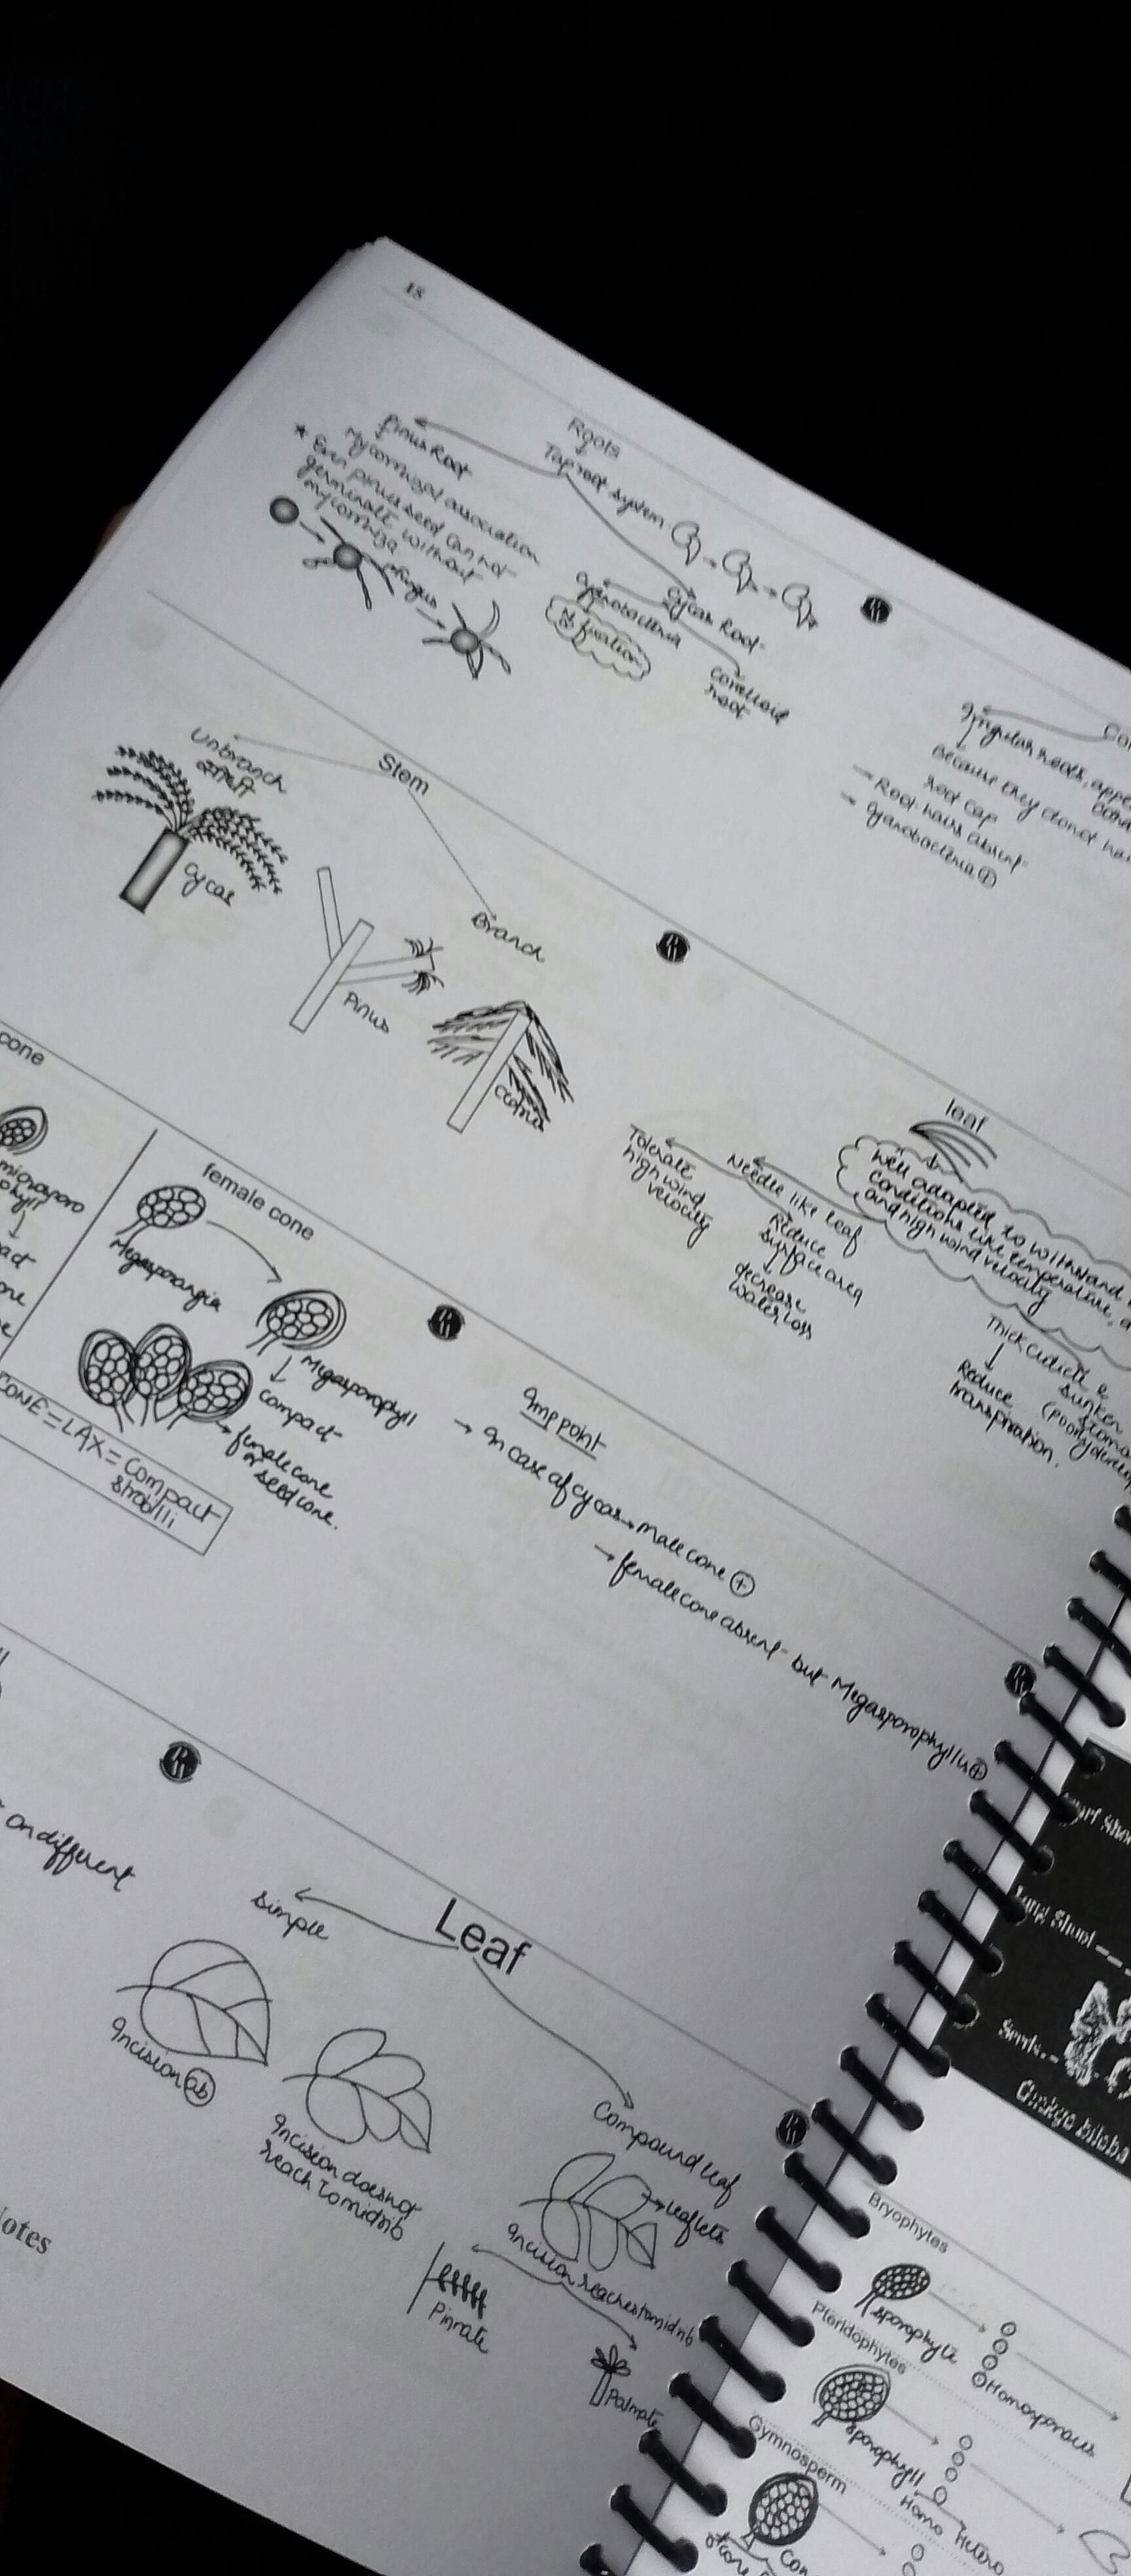 48
Roots
Tap root system
Pinus Root
Mycorrhizal association
* Even pinus seed can not
germinate without
mycorrhiza
fungus
Cycas Root
Cyanobacteria
N2 fixation
Coralloid
root
Irregular roots, appe
Because they donot ha
root cap
→ Root hairs absent
→ Cyanobacteria ⊕
Stem
Unbranch
Cycas
Branch
Pinus
leaf
Well adapted to withstand
conditions like temperature,
and high wind velocity
Needle like leaf
Tolerate
high wind
velocity
Reduce
surface area
decrease
water loss
Thick cuticle &
sunken
Reduce
transpiration.
cone
female cone
Megasporangia
Megasporophyll
compact
female cone
or seed cone.
CONE = LAX = Compact
strobili
Imp point
→ In case of cycas → male cone ⊕
→ female cone absent but Megasporophylls ⊕
On different
Leaf
Simple
Incision ab
Incision does not
reach to midrib
Compound leaf
leaflets
Incision reaches to midrib
Pinnate
Palmate
otes
Long Shoot
Seeds
Ginkgo biloba
Bryophytes
sporophyte
Homosporous
Pteridophytes
sporophyll
Homo Hetero
Gymnosperm